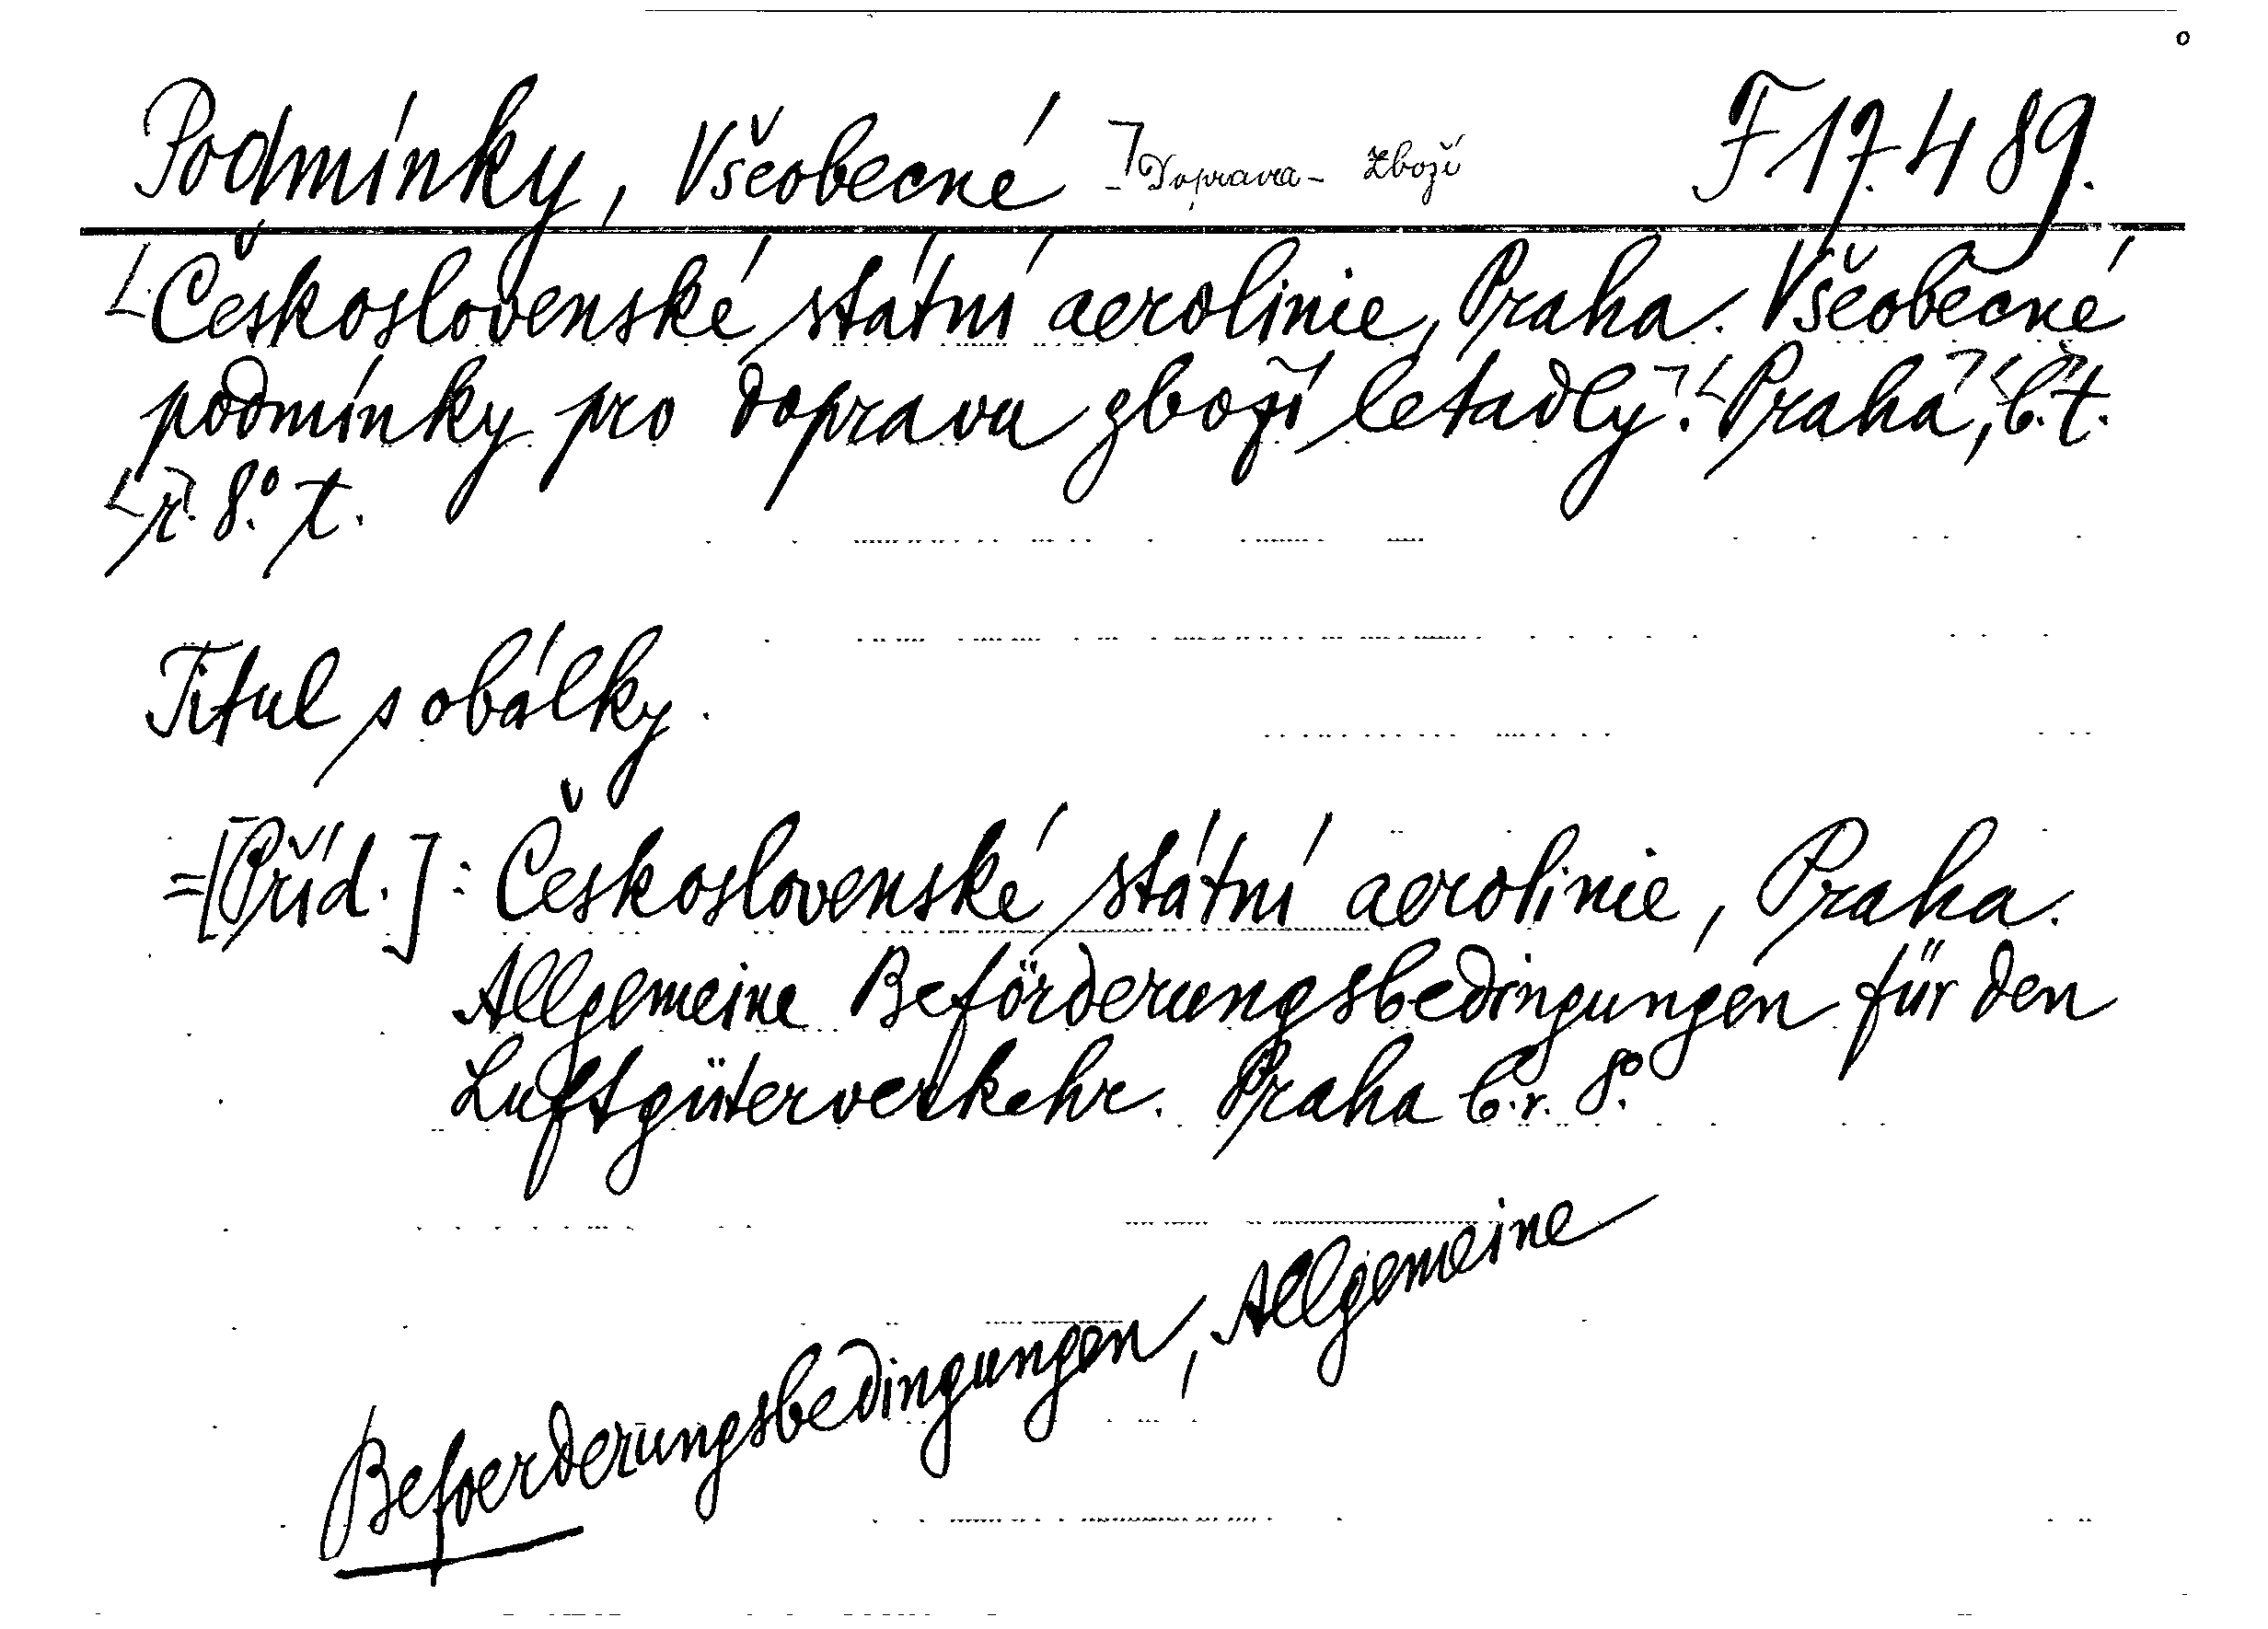 Podmínky, Všeobecné Doprava - zboží F 17.489.
Československé státní aerolinie, Praha. Všeobecné
podmínky pro dopravu zboží letadly. Praha, b. t.
r. 8° t.
Titul s obálky.
=[Příd.]: Československé státní aerolinie, Praha.
Allgemeine Beförderungsbedingungen für den
Luftgüterverkehr. Praha b. r. 8°.
Befoerderungsbedingungen, Allgemeine